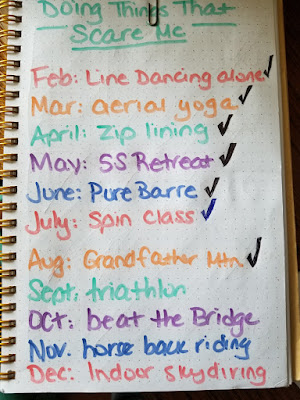 Doing Things That
Scare Me
Feb: Line Dancing alone ✓
Mar: aerial yoga ✓
April: Zip lining ✓
May: SS Retreat ✓
June: Pure Barre ✓
July: Spin Class ✓
Aug: Grandfather Mtn. ✓
Sept: triathlon
Oct: beat the Bridge
Nov. horse back riding
Dec: Indoor skydiving